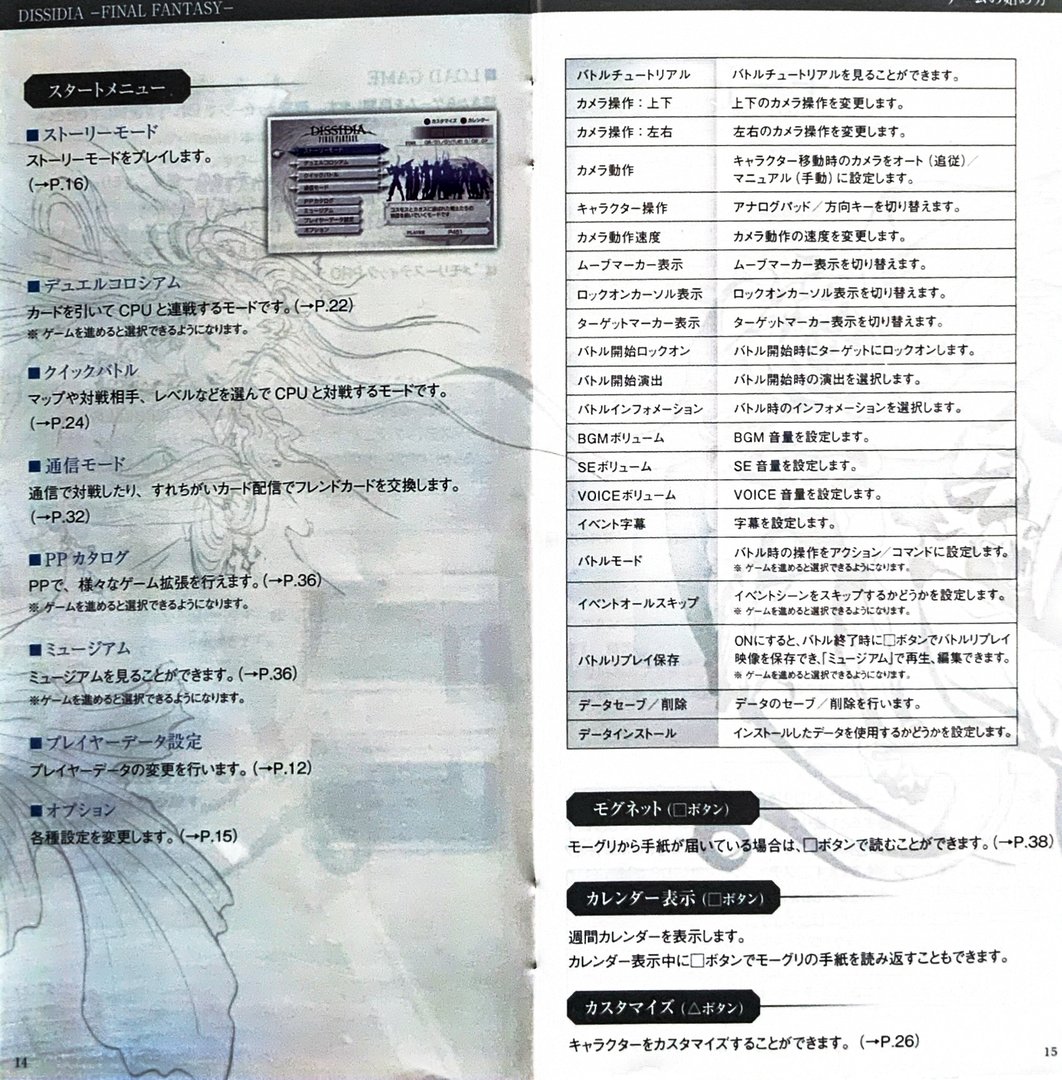 DISSIDIA −FINAL FANTASY−
スタートメニュー
■ストーリーモード
ストーリーモードをプレイします。
(→P.16)
DISSIDIA
FINAL FANTASY
カスタマイズ
カレンダー
デュエルコロシアム
クイックバトル
通信モード
PPカタログ
ミュージアム
プレイヤーデータ設定
オプション
コスモスとカオスに選ばれた戦士たちの
物語を紡いでいくモードです
PLAYER
■デュエルコロシアム
カードを引いて CPU と連戦するモードです。(→P.22)
※ ゲームを進めると選択できるようになります。
■クイックバトル
マップや対戦相手、レベルなどを選んで CPU と対戦するモードです。
(→P.24)
■通信モード
通信で対戦したり、すれちがいカード配信でフレンドカードを交換します。
(→P.32)
■PP カタログ
PPで、様々なゲーム拡張を行えます。(→P.36)
※ ゲームを進めると選択できるようになります。
■ミュージアム
ミュージアムを見ることができます。(→P.36)
※ゲームを進めると選択できるようになります。
■プレイヤーデータ設定
プレイヤーデータの変更を行います。(→P.12)
■オプション
各種設定を変更します。(→P.15)
14
バトルチュートリアル バトルチュートリアルを見ることができます。
カメラ操作：上下 上下のカメラ操作を変更します。
カメラ操作：左右 左右のカメラ操作を変更します。
カメラ動作 キャラクター移動時のカメラをオート（追従）／
マニュアル（手動）に設定します。
キャラクター操作 アナログパッド／方向キーを切り替えます。
カメラ動作速度 カメラ動作の速度を変更します。
ムーブマーカー表示 ムーブマーカー表示を切り替えます。
ロックオンカーソル表示 ロックオンカーソル表示を切り替えます。
ターゲットマーカー表示 ターゲットマーカー表示を切り替えます。
バトル開始ロックオン バトル開始時にターゲットにロックオンします。
バトル開始演出 バトル開始時の演出を選択します。
バトルインフォメーション バトル時のインフォメーションを選択します。
BGMボリューム BGM 音量を設定します。
SEボリューム SE 音量を設定します。
VOICEボリューム VOICE 音量を設定します。
イベント字幕 字幕を設定します。
バトルモード バトル時の操作をアクション／コマンドに設定します。
※ ゲームを進めると選択できるようになります。
イベントオールスキップ イベントシーンをスキップするかどうかを設定します。
※ ゲームを進めると選択できるようになります。
バトルリプレイ保存 ONにすると、バトル終了時に□ボタンでバトルリプレイ
映像を保存でき、「ミュージアム」で再生、編集できます。
※ ゲームを進めると選択できるようになります。
データセーブ／削除 データのセーブ／削除を行います。
データインストール インストールしたデータを使用するかどうかを設定します。
モグネット（□ボタン）
モーグリから手紙が届いている場合は、□ボタンで読むことができます。(→P.38)
カレンダー表示（□ボタン）
週間カレンダーを表示します。
カレンダー表示中に□ボタンでモーグリの手紙を読み返すこともできます。
カスタマイズ（△ボタン）
キャラクターをカスタマイズすることができます。(→P.26)
15